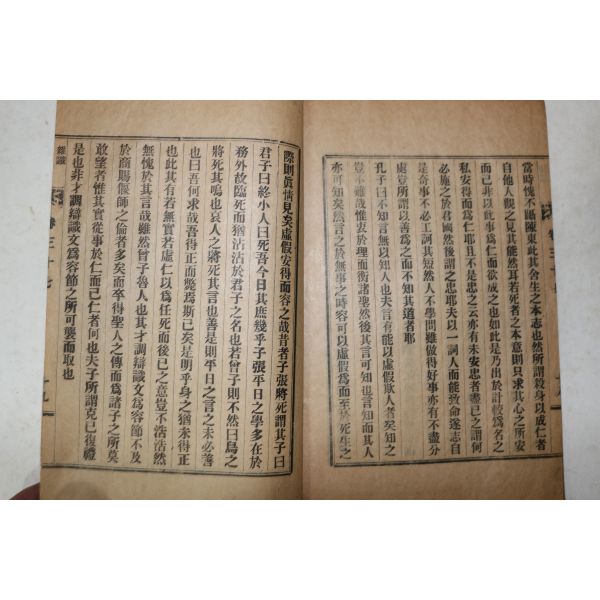 當時愧不踊陳東此其舍生之本志也然所謂殺身以成仁者
自他人觀之見其能然耳若死者之本意則只求其心之所安
而已非以此事爲仁而欲成之也如此是乃出於計較爲名之
私安得爲仁耶且不是忠之云亦有未安忠者盡已之謂何
必施之於君國然後謂之忠耶夫以一詞人而能致命遂志自
是奇事不必工訶其短然人不學問雖做得好事亦有不盡分
處豈所謂以善爲之而不知其道者耶
孔子曰不知言無以知人也夫言有能以虛假欺人者矣知之
豈不難哉惟衷於理而衡諸聖然後其言可知也言知而其人
亦可知矣然言之於無事之時容可以虛假爲而至於死生之
卷三十七
際則眞情見矣虛假安得而容之哉昔者子張將死謂其子曰
君子曰終小人曰死吾今日其庶幾乎子張平日之學多在於
務外故臨死而猶沾沾於君子之名也若曾子則不然曰鳥之
將死其鳴也哀人之將死其言也善是則平日之言之未必善
也曰吾何求哉吾得正而斃焉斯已矣是明乎身之猶未得正
也此其有若無實若虛仁以爲任死而後已之意豈不浩浩然
無愧於其言哉雖然曾子魯人也其才調辯識文爲容節不及
於商賜偃師之倫者多矣而卒得聖人之傳而爲諸子之所莫
敢望者惟其實從事於仁而已仁者何也夫子所謂克已復禮
是也非才調辯識文爲容節之所可襲而取也
雜識
卷三十七
十九